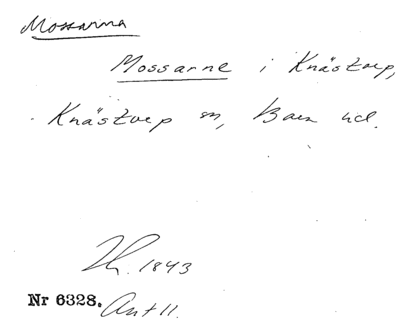 Mossarna
Mossarne i Knästorp,
Knästorp sn, Bara hd.
1843
Nr 6328. Ant 11.